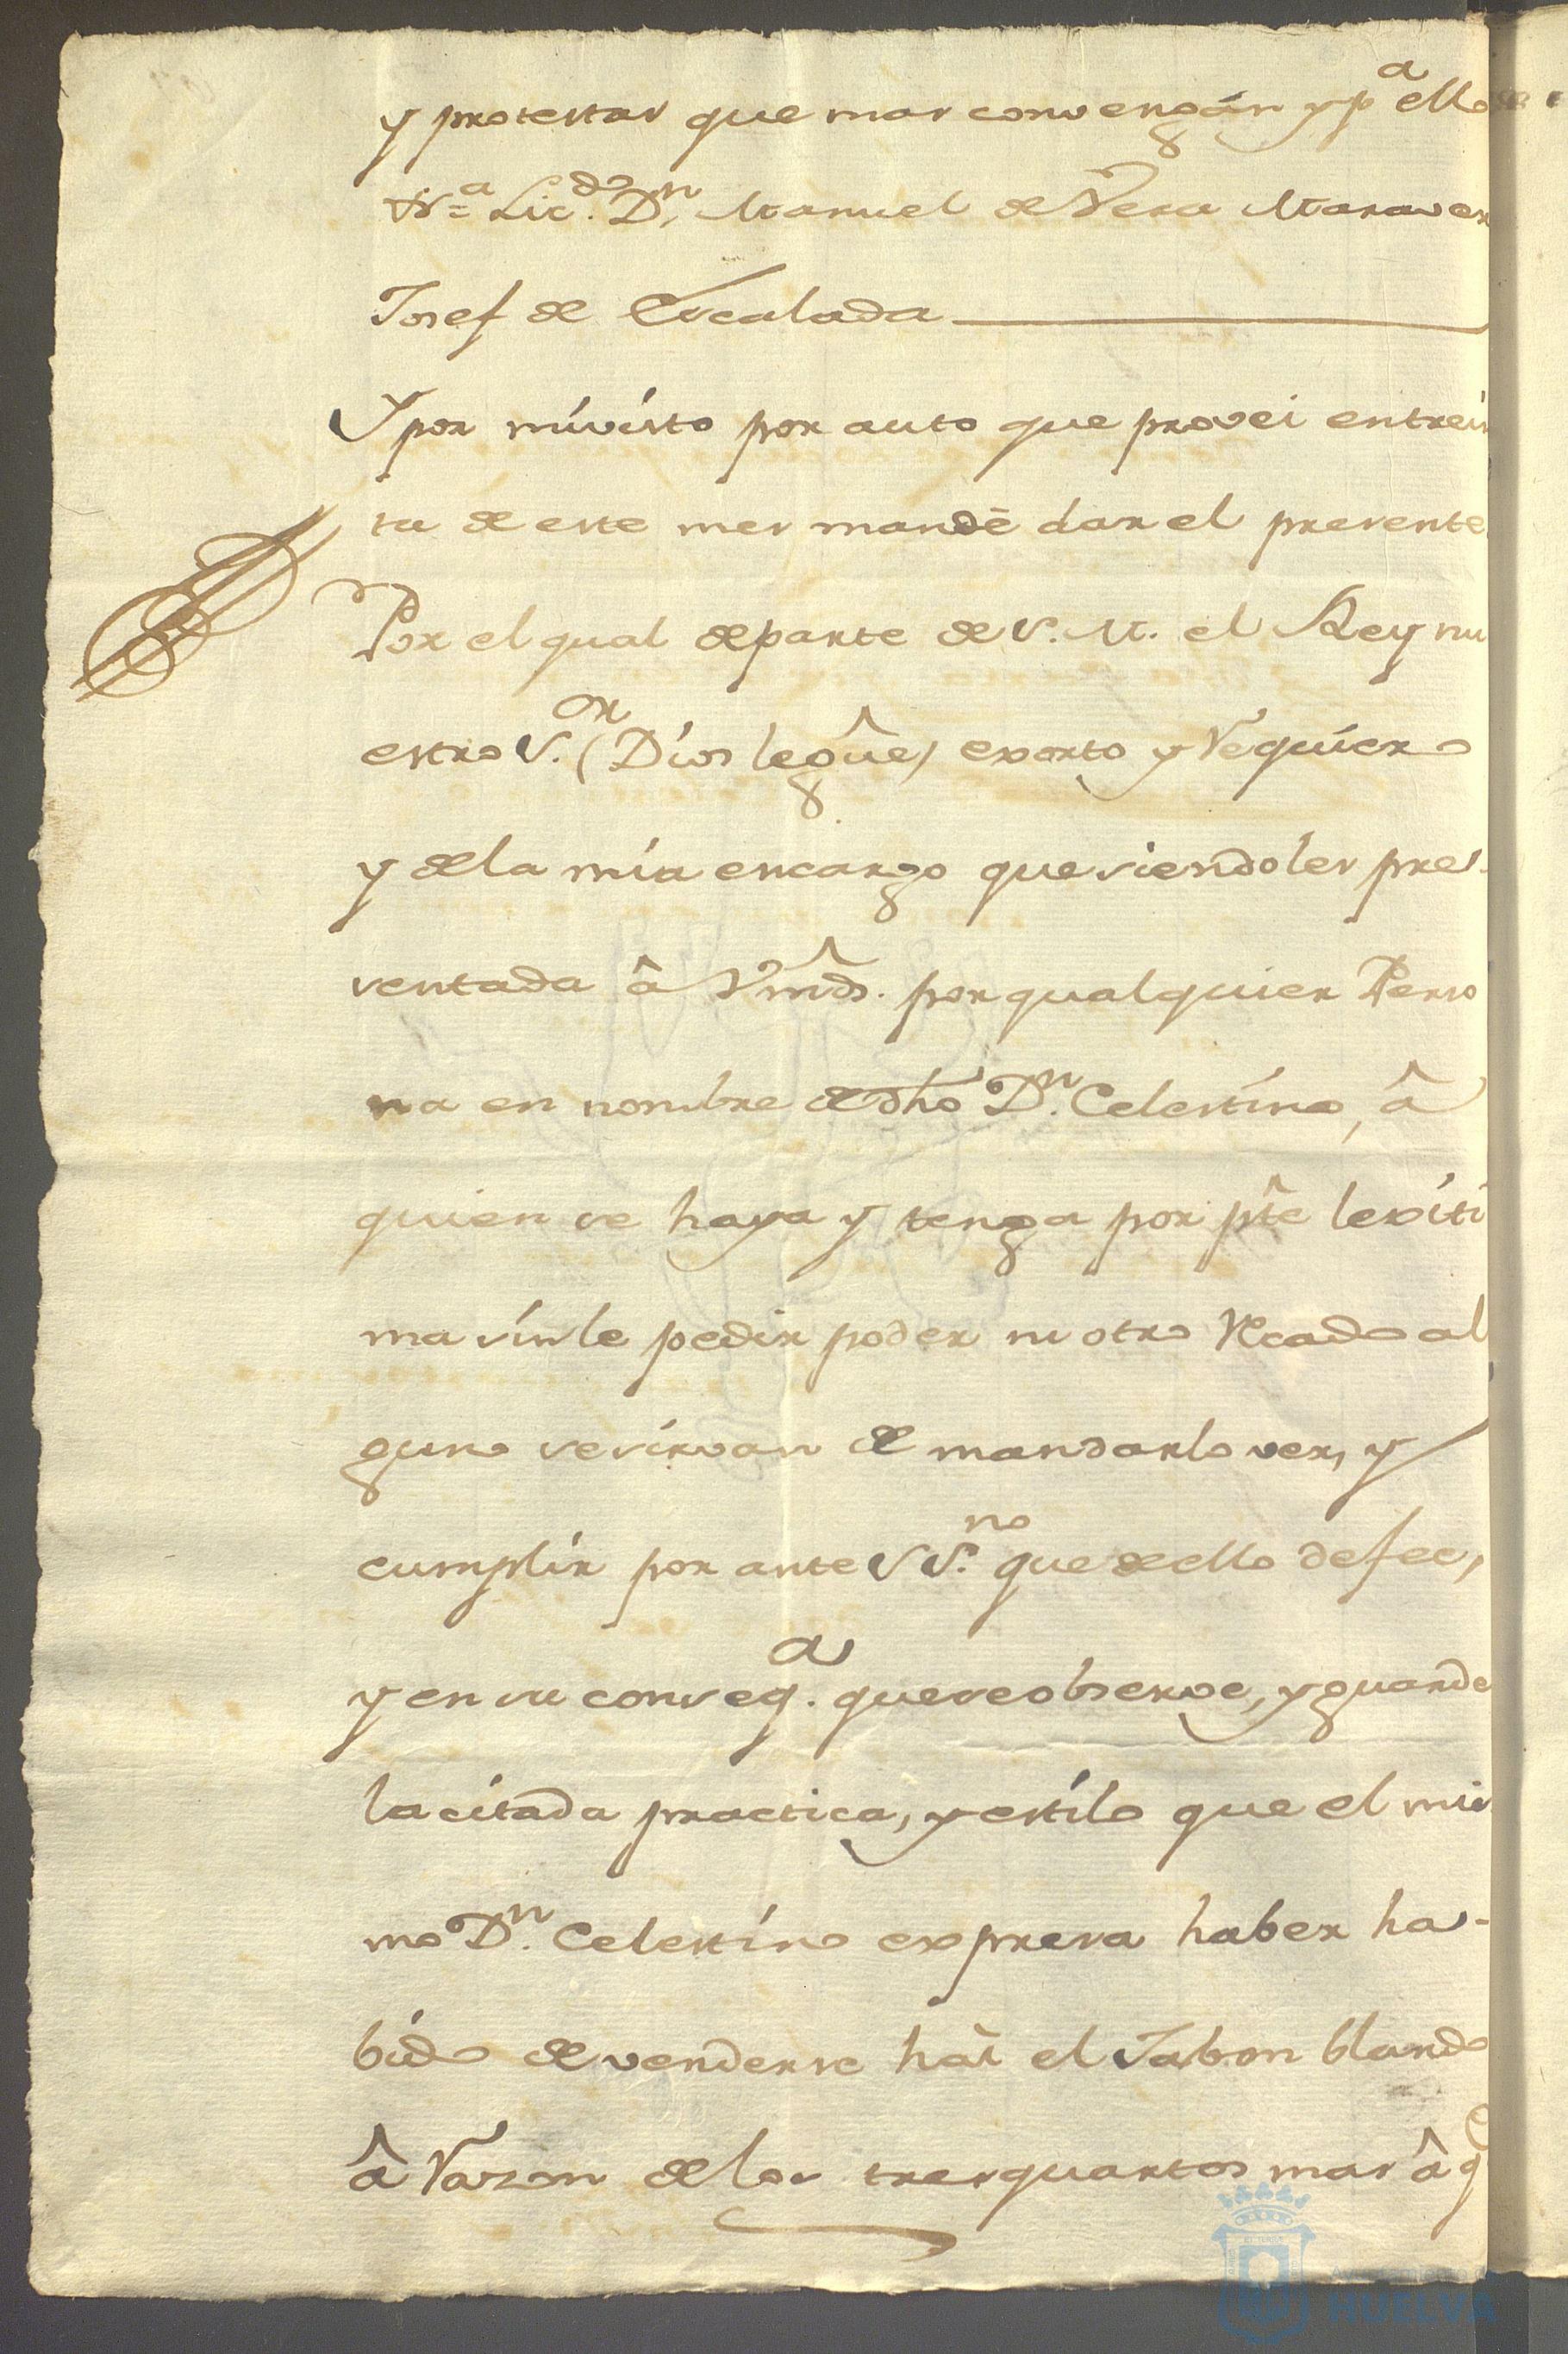 y protextas que mas convengán y pª ello
Lic.do D.n Manuel de Vera Maraver
Josef de Escalada
Y por mí visto por auto que provei entrein
ta de este mes mandé dar el presente
Por el qual departe de S. M. el Rey nu
estro S.or (Dios le gûe) exorto y requiero
y de la mia encargo que siendoles pre-
sentada â Vmds. por qualquier Perso
na en nombre de dho D.n Celestino, â
quien se haya y tenga por pte lexiti
ma sin le pedir poder ni otro recado al
guno se sirvan de mandarlo ver, y
cumplir por ante SS.no que de ello de fee,
y en su conseq.a que se observe, y guarde
la citada practica, y estilo que el mis
mo D.n Celestino expresa haber ha-
bido de venderse hâi el Jabon blando
â razon de los tres quartos mas â q.e
HUELVA